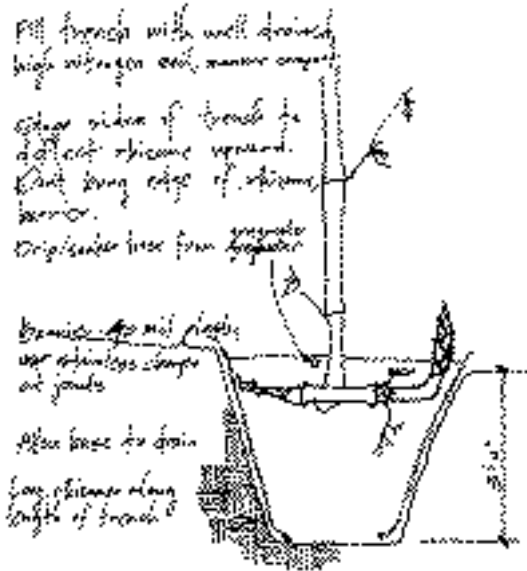 Fill trench with well drained,
high nitrogen soil, manure compost
Slope sides of trench to
deflect rhizome upward.
Don't bury edge of rhizome
barrier.
Drip/soaker hose from
Barrier 40 mil plastic
use stainless clamps
at joints
Allow base to drain
Lay rhizome along
length of trench